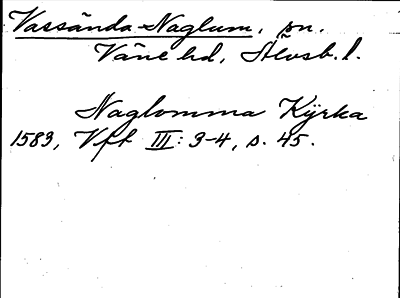 Vassända-Naglum, sn.
Väne hd, Älvsb. l.
Naglomma Kÿrka
1583, Vft III: 3-4, s. 45.